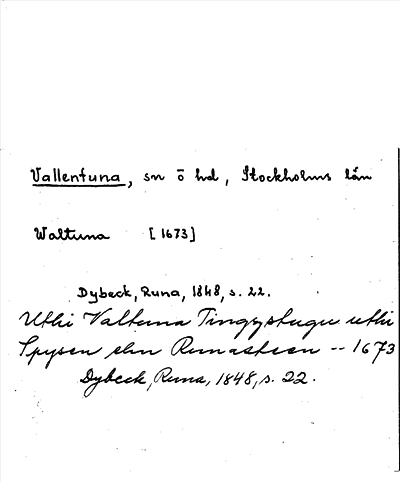 Vallentuna, sn ö hd, Stockholms län
Waltuna [1673]
Dybeck, Runa, 1848, s. 22.
Uthi Valtuna Tingzstugu uthi
Spysen ehn Runasteen -- 1673
Dybeck, Runa, 1848, s. 22.